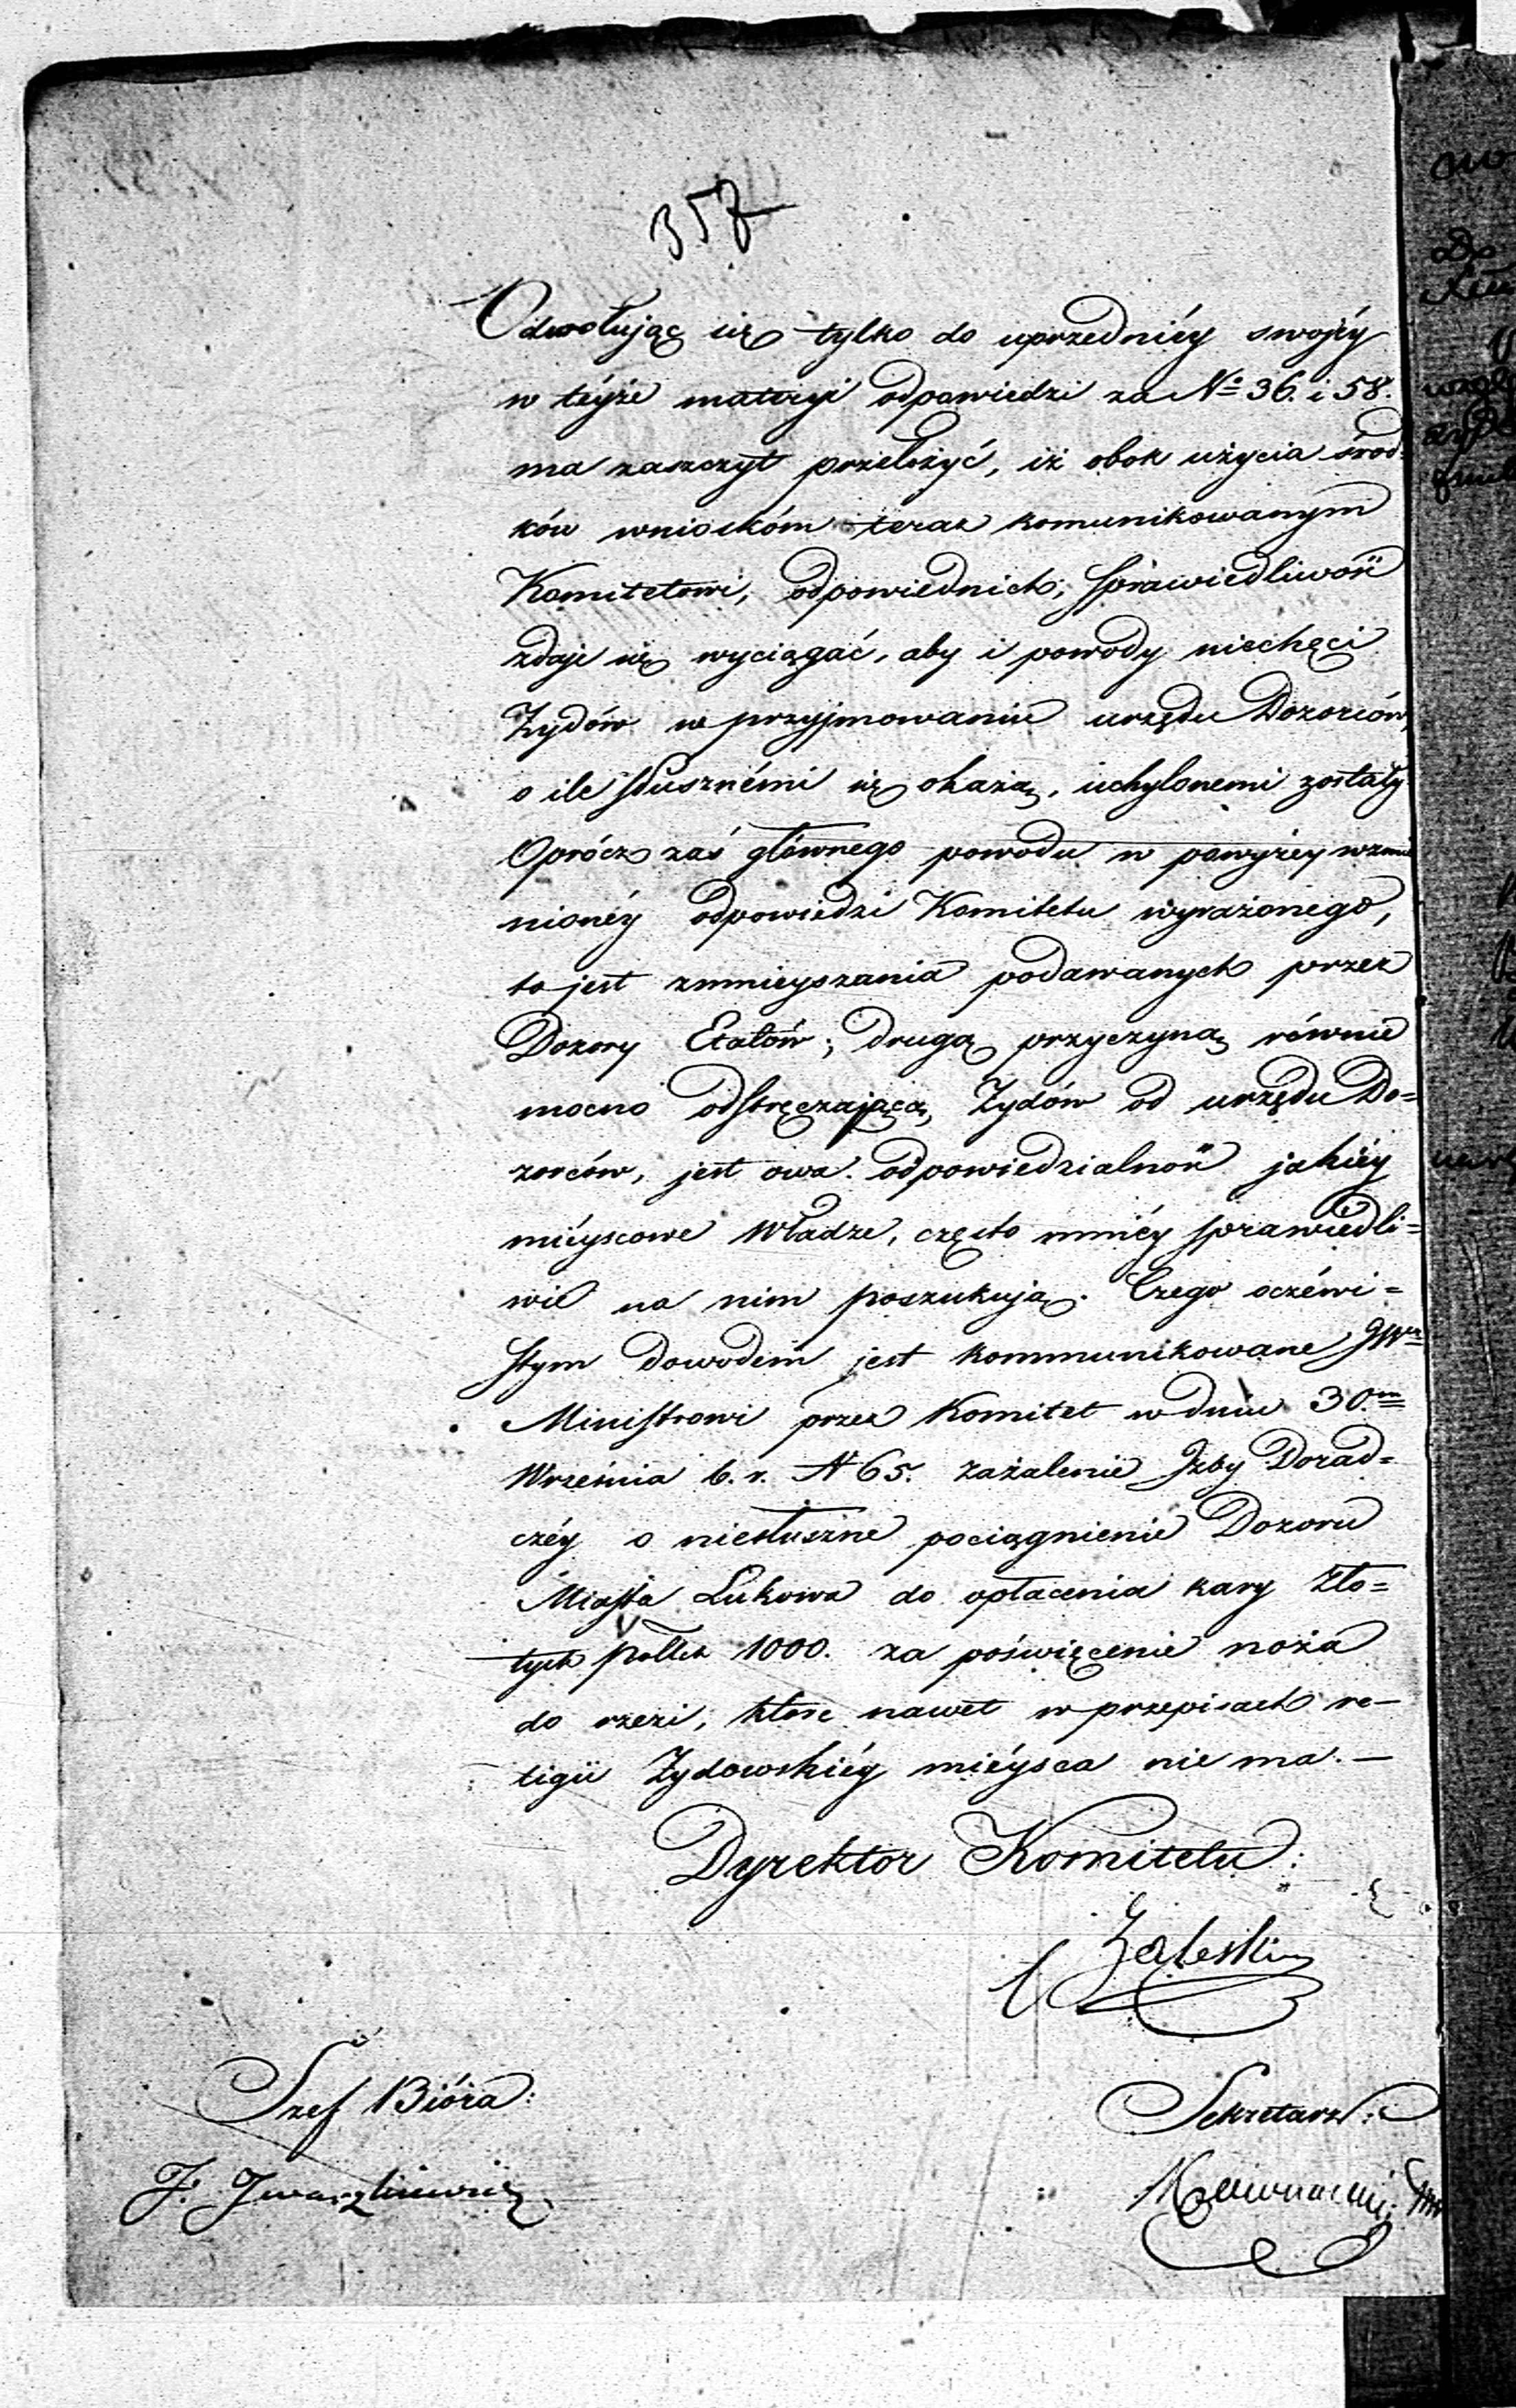 357
Odwołując się tylko do uprzedniéy swojéy
w téyże materyi odpowiedzi za Nº 36. i 58.
ma zaszczyt przełożyć, iż obok użycia środ-
ków wnioskóm teraz komunikowanym
Komitetowi, odpowiednich; sprawiedliwość
zdaje się wyciągać, aby i powody niechęci
Żydów w przyjmowaniu urzędu Dozorców,
o ile słusznémi się okażą, uchylonemi zostały.
Oprócz zaś głównego powodu w powyżéy wzmie
nionéy odpowiedzi Komitetu wyrażonego,
to jest zmnieyszania podawanych przez
Dozory Etatów; drugą przyczyną równie
mocno odstręczającą Żydów od urzędu Do=
zorców, jest owa odpowiedzialność jakiéy
miéyscowe Władze, często mniéy sprawiedli=
wie na nim poszukują. Czego oczéwi=
stym dowodem jest kommunikowane JWu
Ministrowi przez Komitet w dniu 30.m
Września b. r. N 65. zażalenie Izby Dorad=
czéy o niesłuszne pociągnienie Dozoru
Miasta Łukowa do opłacenia kary Zło=
tych Polsch 1000. za poświęcenie noża
do rzezi, które nawet w przepisach re-
ligii Żydowskiéy miéysca nie ma. —
Dyrektor Komitetu:
Zaleski
Szef Bióra:
Sekretarz:
J. Iwaszkiewicz